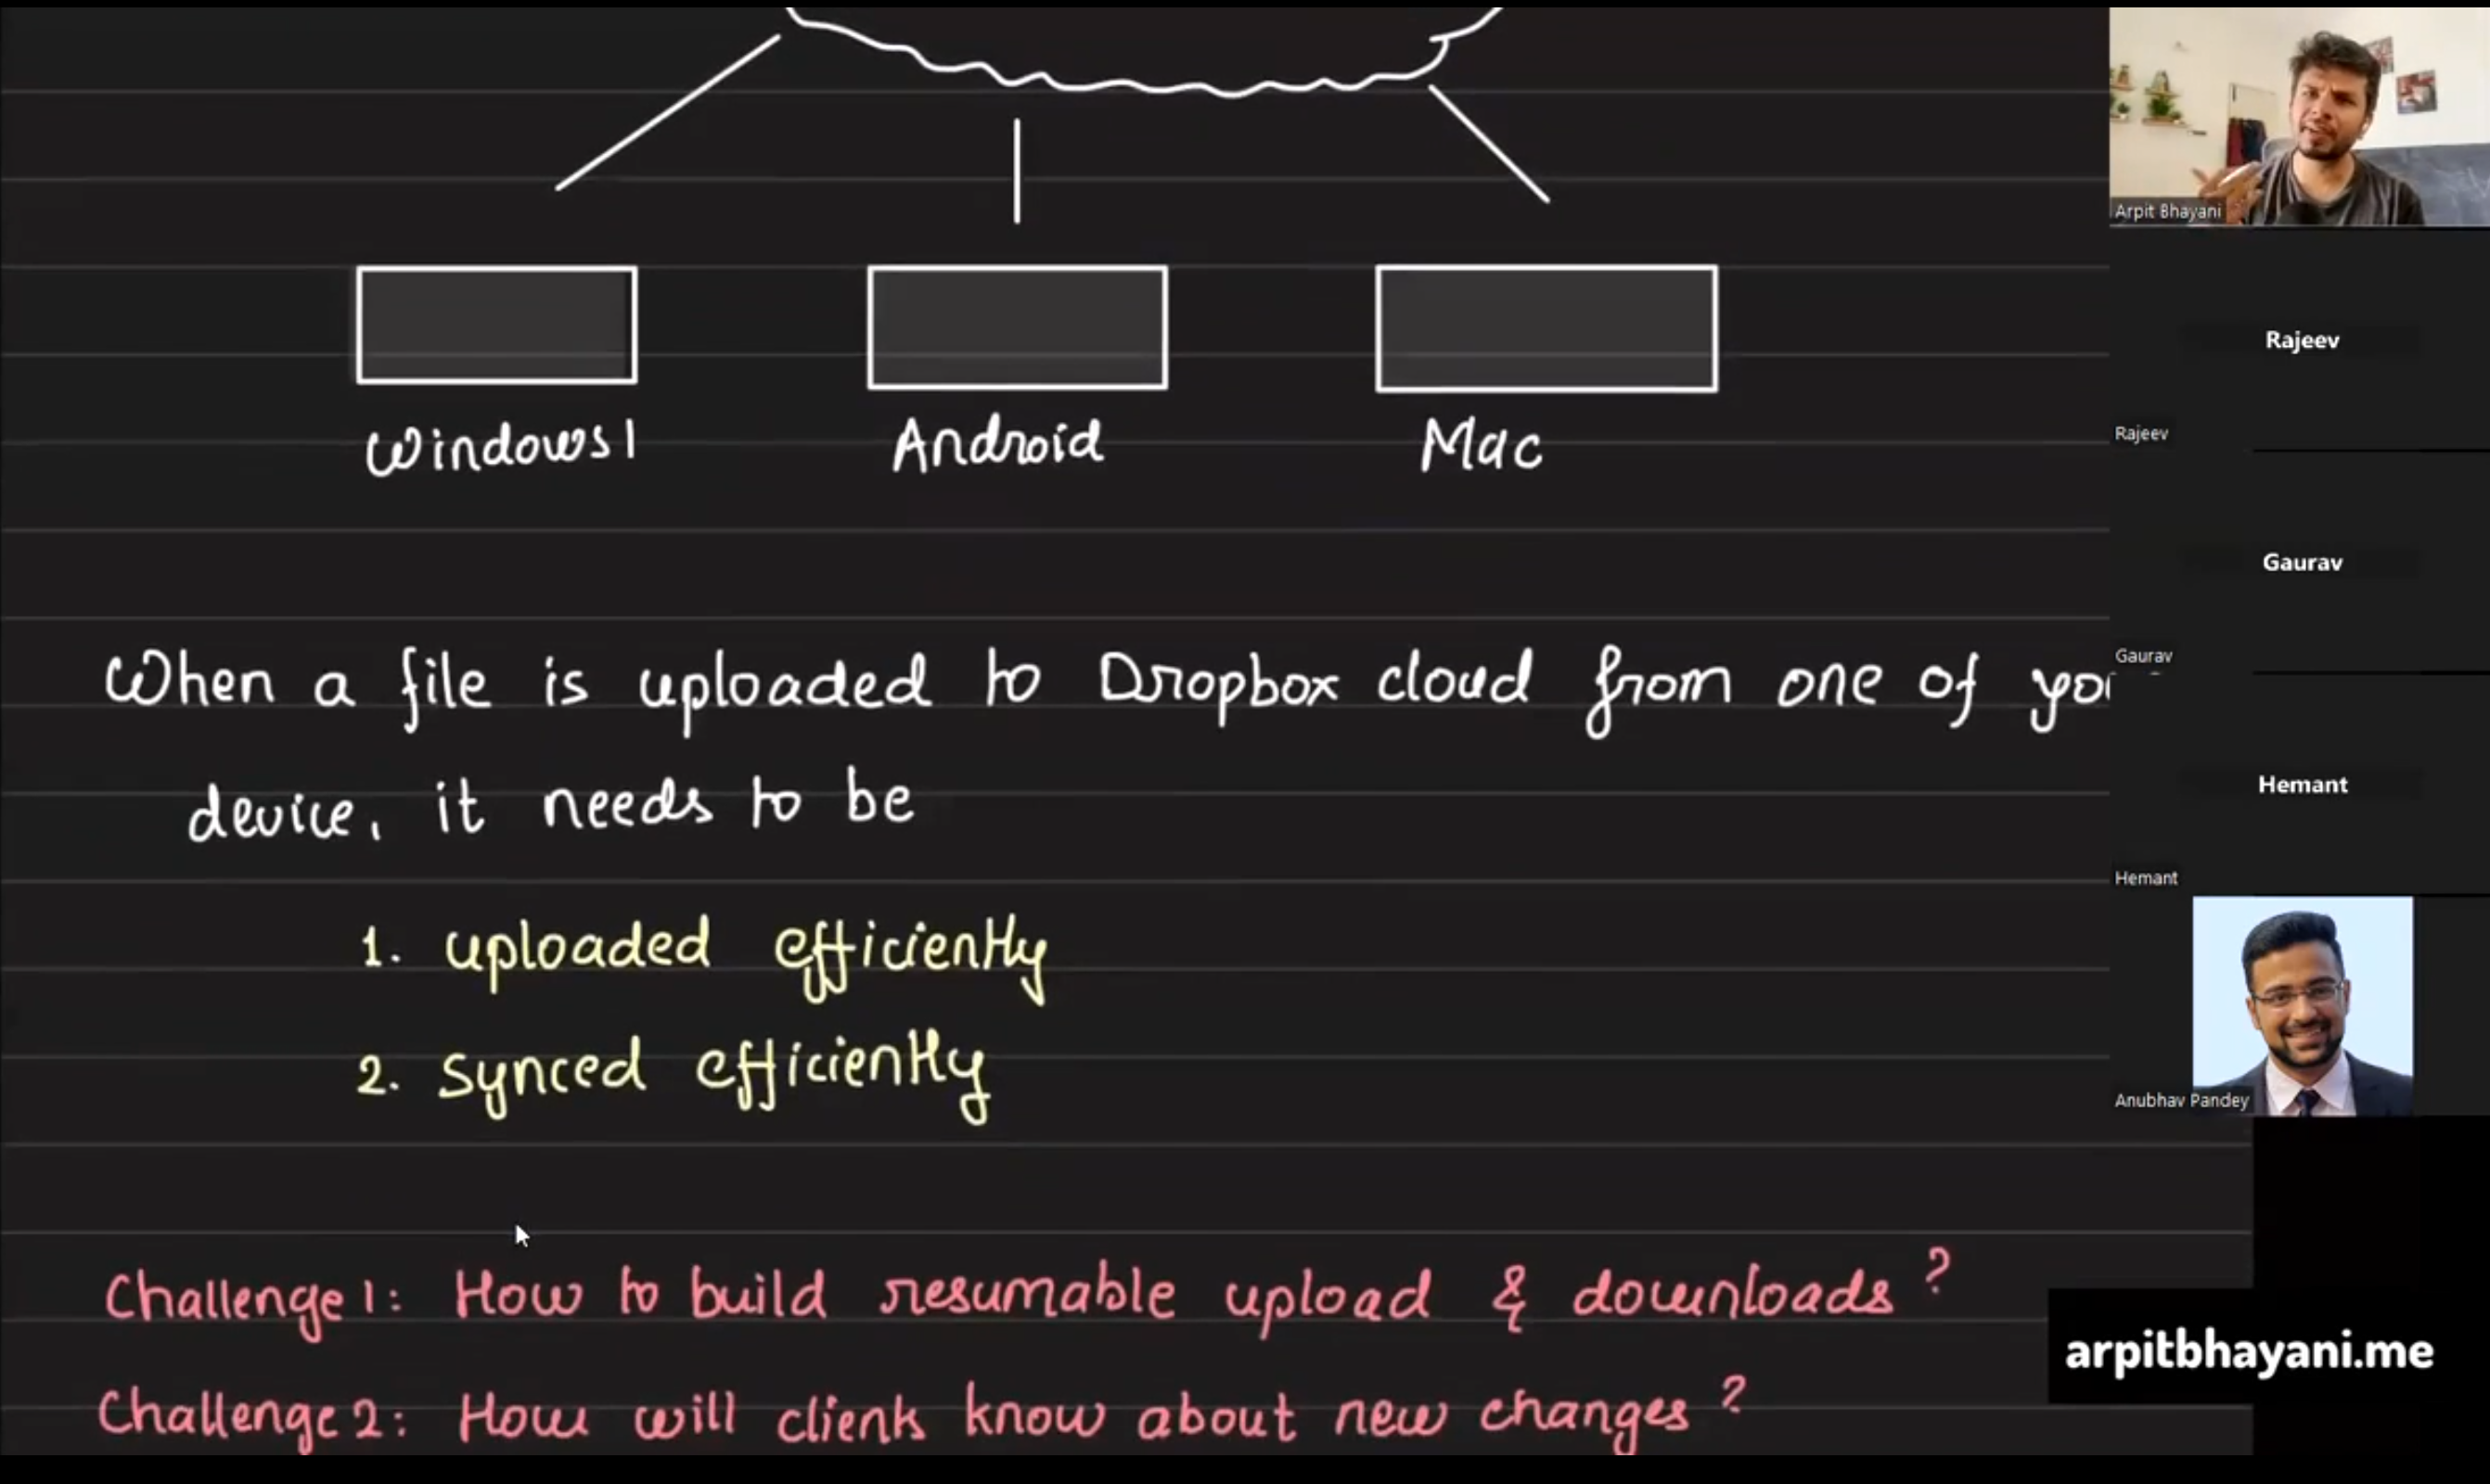 Windows1
Android
Mac
When a file is uploaded to Dropbox cloud from one of
device, it needs to be
1. uploaded efficiently
2. synced efficiently
Challenge 1: How to build resumable upload & downloads?
Challenge 2: How will clients know about new changes?
Arpit Bhayani
Rajeev
Rajeev
Gaurav
Gaurav
Hemant
Hemant
Anubhav Pandey
arpitbhayani.me